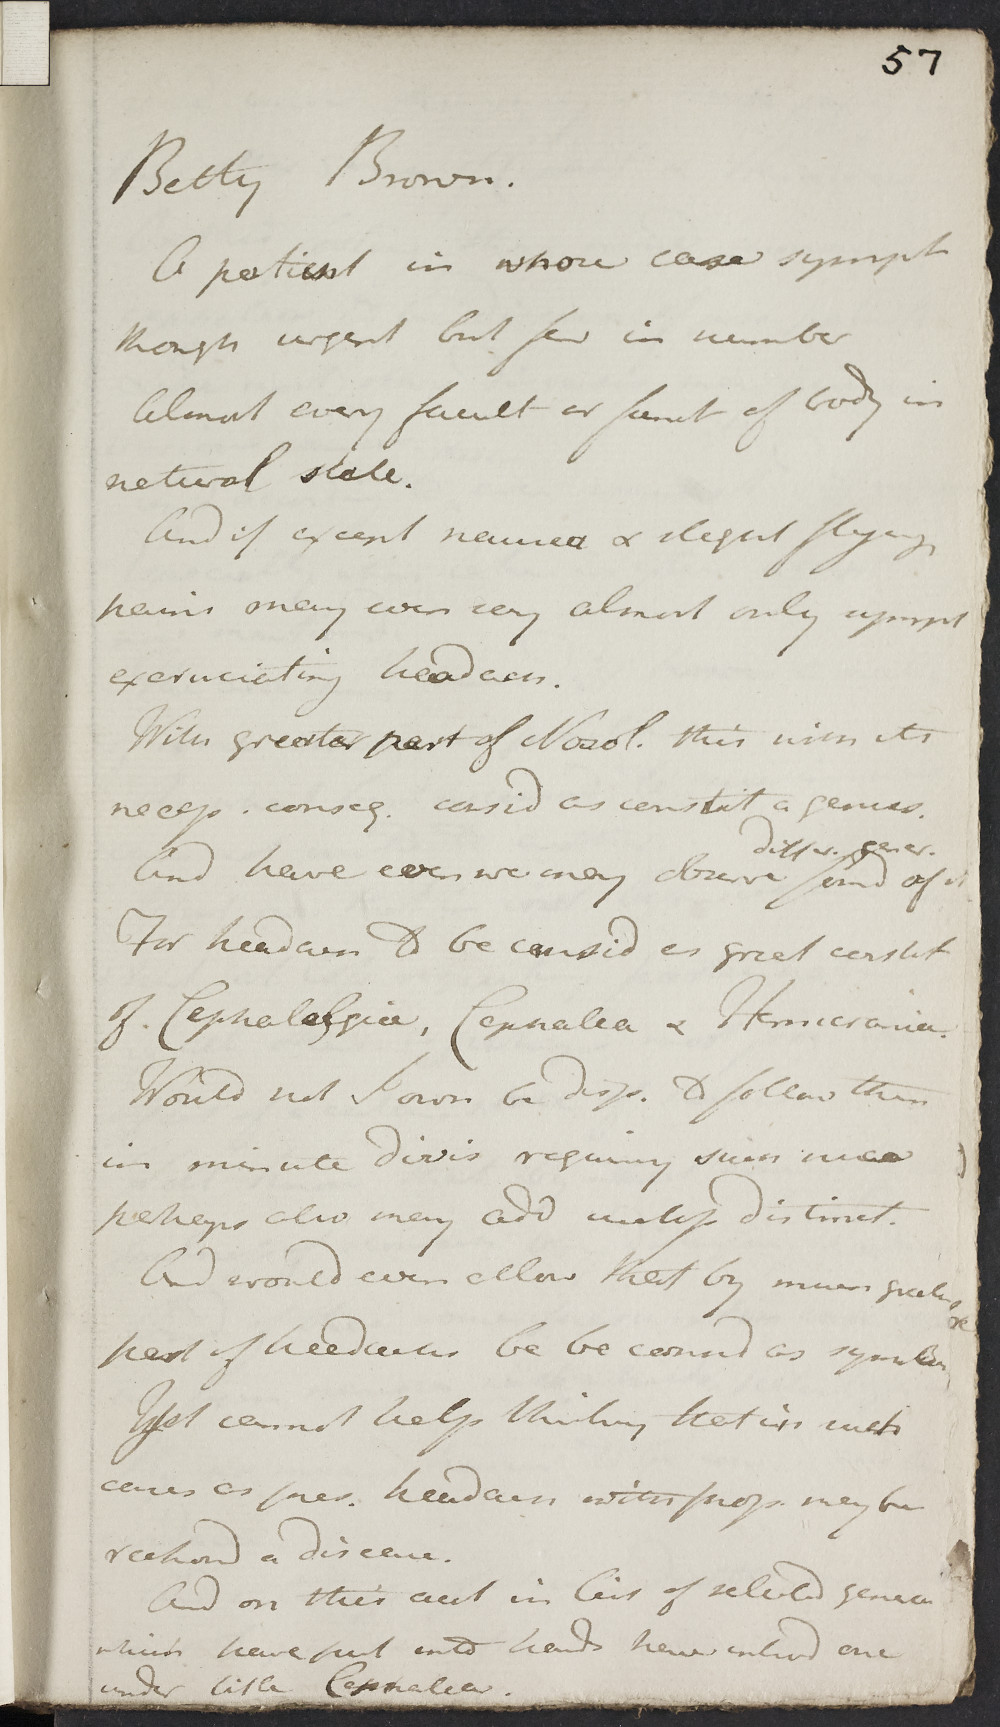 57
Betty Brown.
A patient in whose case sympt
though urgent but few in number
Almost every facult or funct of body in
natural state.
And if except nausea & slight flying
pains may even say almost only sympt
excruciating headach.
With greater part of Nosol. this with its
necess. conseq. consid as constit a genus.
And have even we may observe found of it
differ. gener.
For headach to be consid as great constit
of Cephalalgia, Cephalea & Hemicrania.
Would not I own be disp. to follow them
in minute divis requiring such nice
perhaps also may add useless distinct.
And would even allow that by much greater
part of headachs be be consid as symptom
Yet cannot help thinking that in such
cases as pres. headach with prop. may be
reckond a disease.
And on this acct in list of selectd genera
which have put into hands have introd one
under title Cephalea.